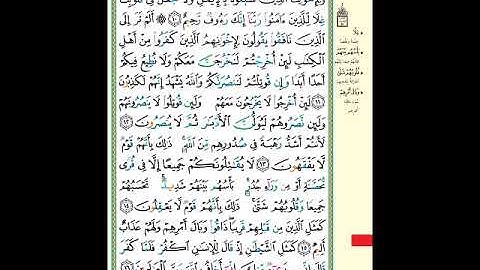 غِلًّا لِّلَّذِينَ ءَامَنُوا۟ رَبَّنَآ إِنَّكَ رَءُوفٌ رَّحِيمٌ ١٠ ۞ أَلَمْ تَرَ إِلَى
ٱلَّذِينَ نَافَقُوا۟ يَقُولُونَ لِإِخْوَٰنِهِمُ ٱلَّذِينَ كَفَرُوا۟ مِنْ أَهْلِ
ٱلْكِتَٰبِ لَئِنْ أُخْرِجْتُمْ لَنَخْرُجَنَّ مَعَكُمْ وَلَا نُطِيعُ فِيكُمْ
أَحَدًا أَبَدًا وَإِن قُوتِلْتُمْ لَنَنصُرَنَّكُمْ وَٱللَّهُ يَشْهَدُ إِنَّهُمْ لَكَٰذِبُونَ
١١ لَئِنْ أُخْرِجُوا۟ لَا يَخْرُجُونَ مَعَهُمْ وَلَئِن قُوتِلُوا۟ لَا يَنصُرُونَهُمْ
وَلَئِن نَّصَرُوهُمْ لَيُوَلُّنَّ ٱلْأَدْبَٰرَ ثُمَّ لَا يُنصَرُونَ ١٢
لَأَنتُمْ أَشَدُّ رَهْبَةً فِى صُدُورِهِم مِّنَ ٱللَّهِ ذَٰلِكَ بِأَنَّهُمْ قَوْمٌ
لَّا يَفْقَهُونَ ١٣ لَا يُقَٰتِلُونَكُمْ جَمِيعًا إِلَّا فِى قُرًى
مُّحَصَّنَةٍ أَوْ مِن وَرَآءِ جُدُرٍۭ بَأْسُهُم بَيْنَهُمْ شَدِيدٌ تَحْسَبُهُمْ
جَمِيعًا وَقُلُوبُهُمْ شَتَّىٰ ذَٰلِكَ بِأَنَّهُمْ قَوْمٌ لَّا يَعْقِلُونَ ١٤
كَمَثَلِ ٱلَّذِينَ مِن قَبْلِهِمْ قَرِيبًا ذَاقُوا۟ وَبَالَ أَمْرِهِمْ وَلَهُمْ عَذَابٌ
أَلِيمٌ ١٥ كَمَثَلِ ٱلشَّيْطَٰنِ إِذْ قَالَ لِلْإِنسَٰنِ ٱكْفُرْ فَلَمَّا كَفَرَ